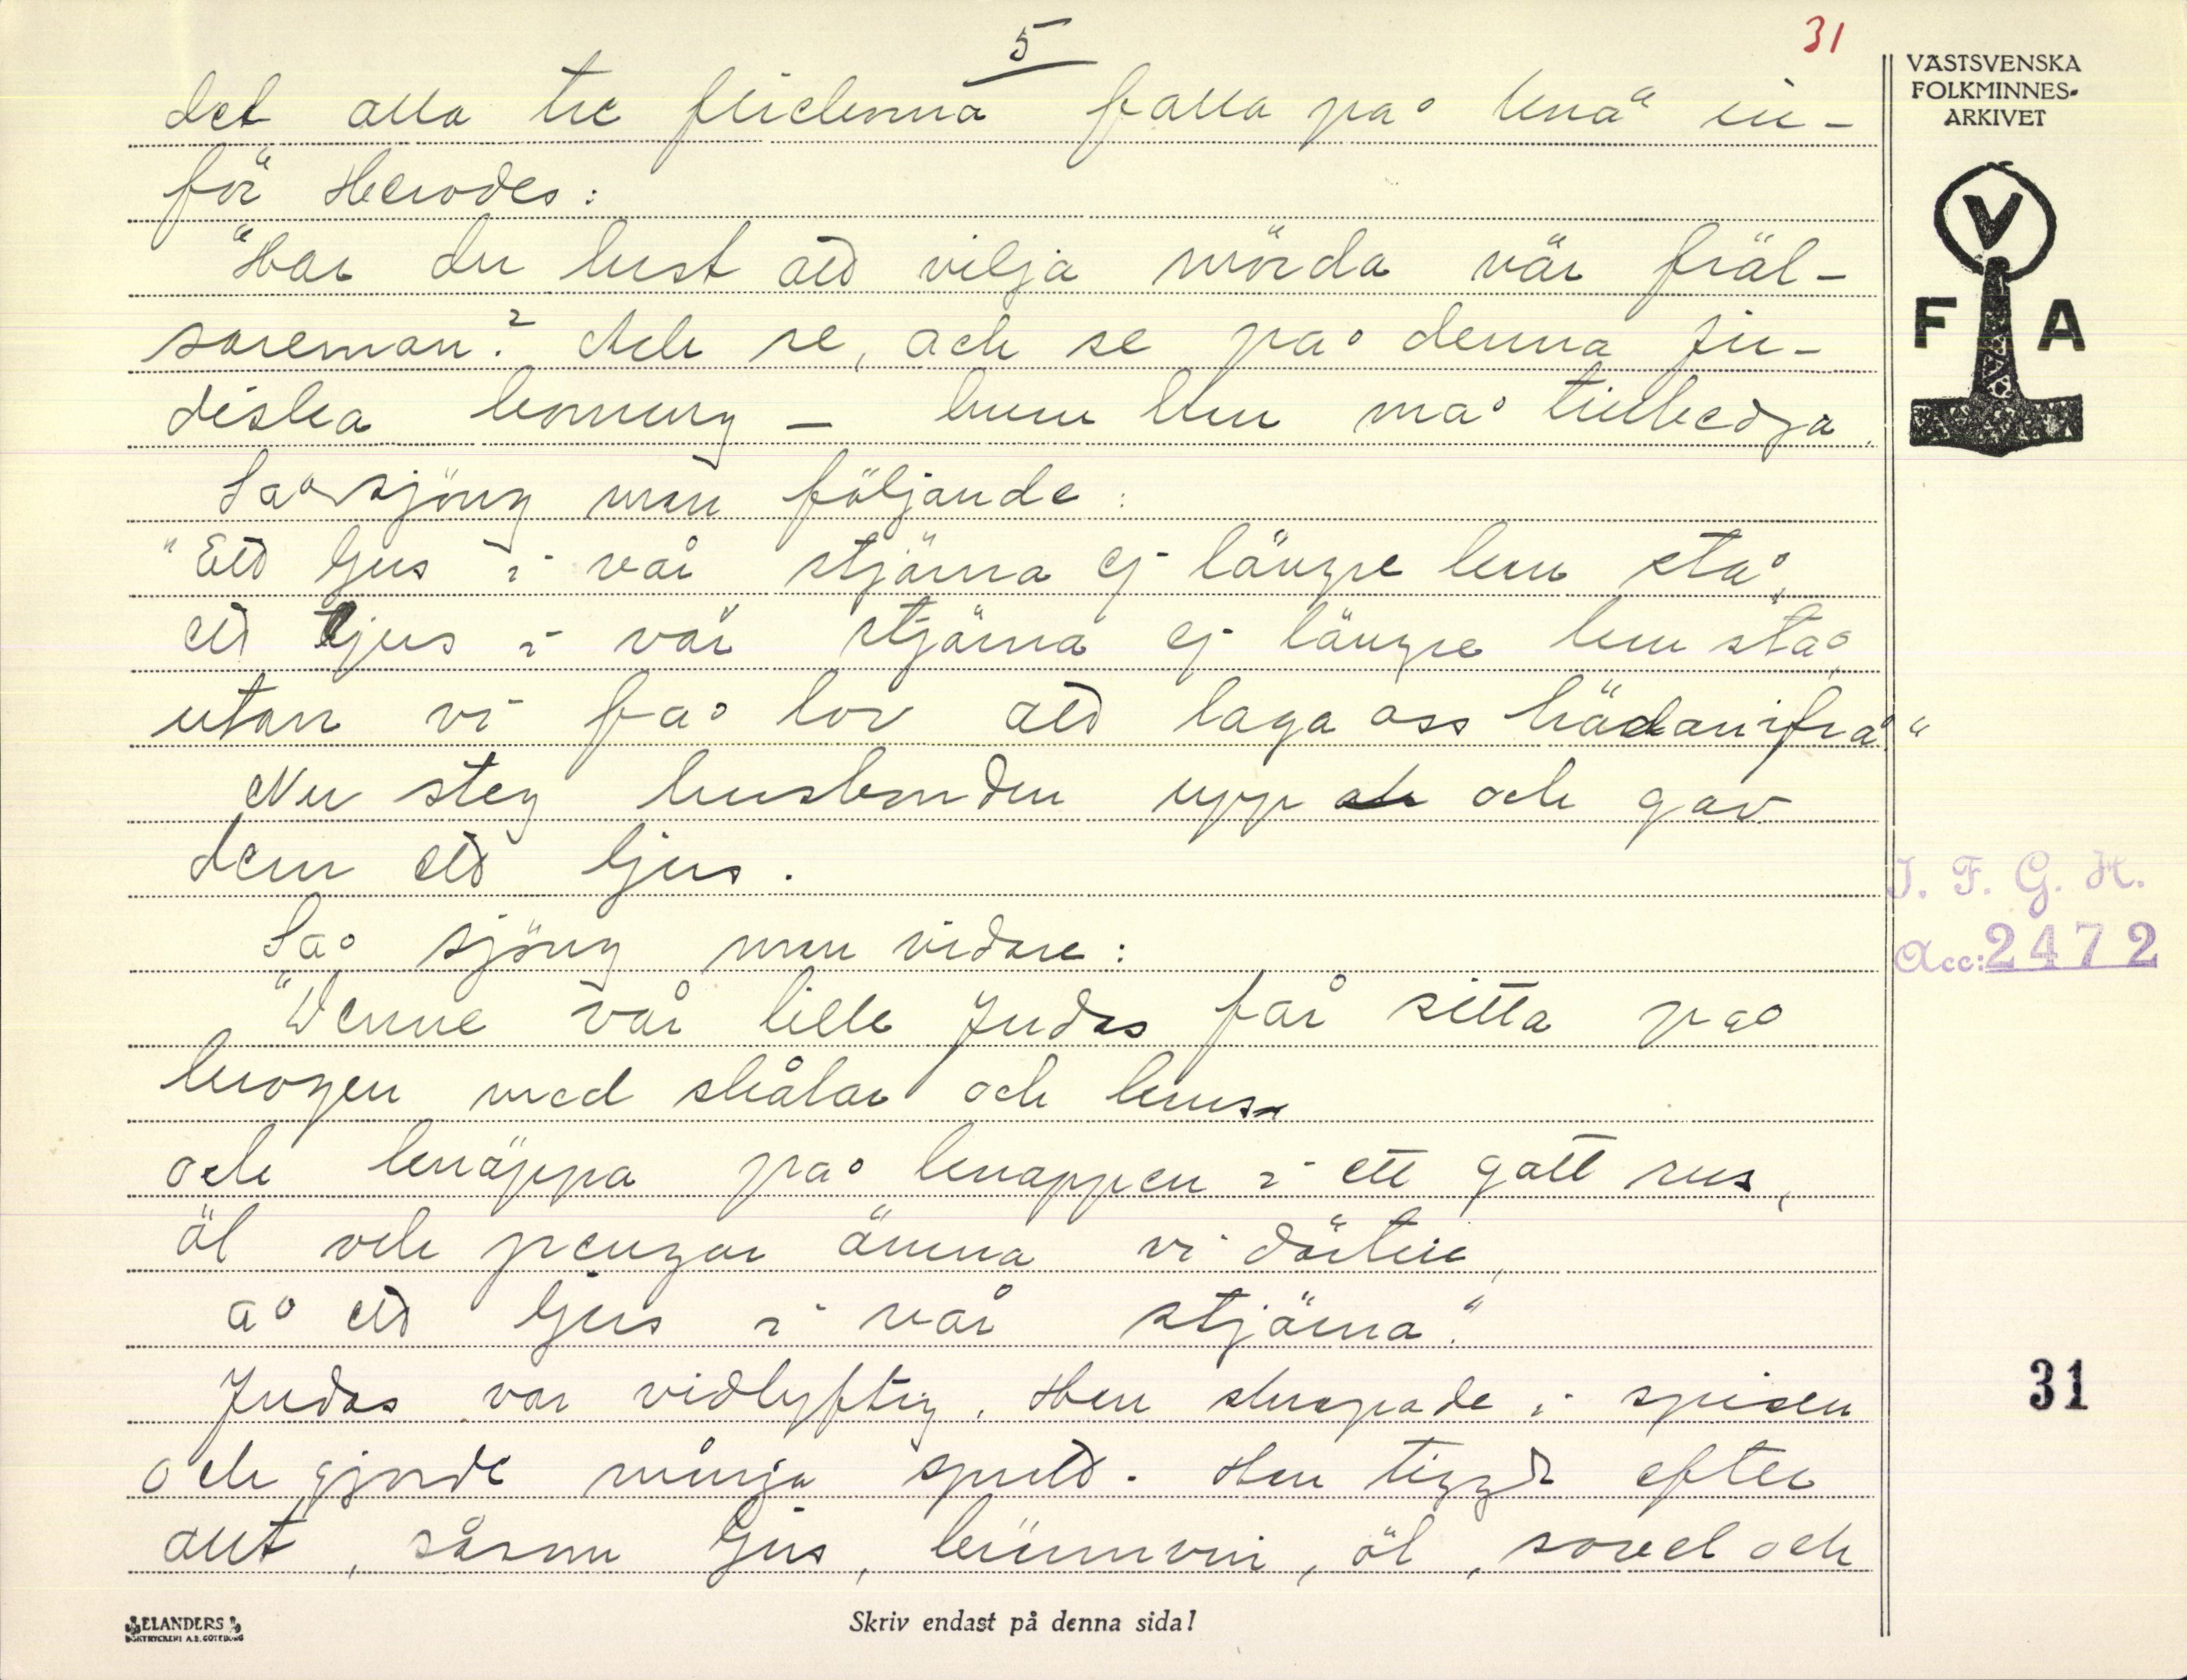 5
31
det alla tre flickorna falla på knä in-
för Herodes:
"Har du lust att vilja mörda vår fräl-
sareman? Ack se, ack se på denna ju-
diska konung – hum hun må tillbedja.
Så sjöng man följande:
"Ett ljus i vår stjärna ej längre kan stå,
ett ljus i vår stjärna ej längre kan stå,
utan vi få lov att laga oss hädanifrå."
Nu steg husbonden upp och gav
dem ett ljus.
Så sjöng man vidare:
"Denne vår lille Judas får sitta på
krogen med skålar och krus
och knäppa på knappen i ett gott rus,
öl och pengar ämna vi därtill,
å ett ljus i vår stjärna."
Judas var vidlyftig. Han skrapade i spisen
och gjorde många spratt. Han tiggde efter
allt, såsom ljus, brännvin, öl, sovel och
VÄSTSVENSKA
FOLKMINNES-
ARKIVET
V
F A
I. F. G. H.
Acc: 2472
31
ELANDERS
BOKTRYCKERI A.B. GÖTEBORG
Skriv endast på denna sida!